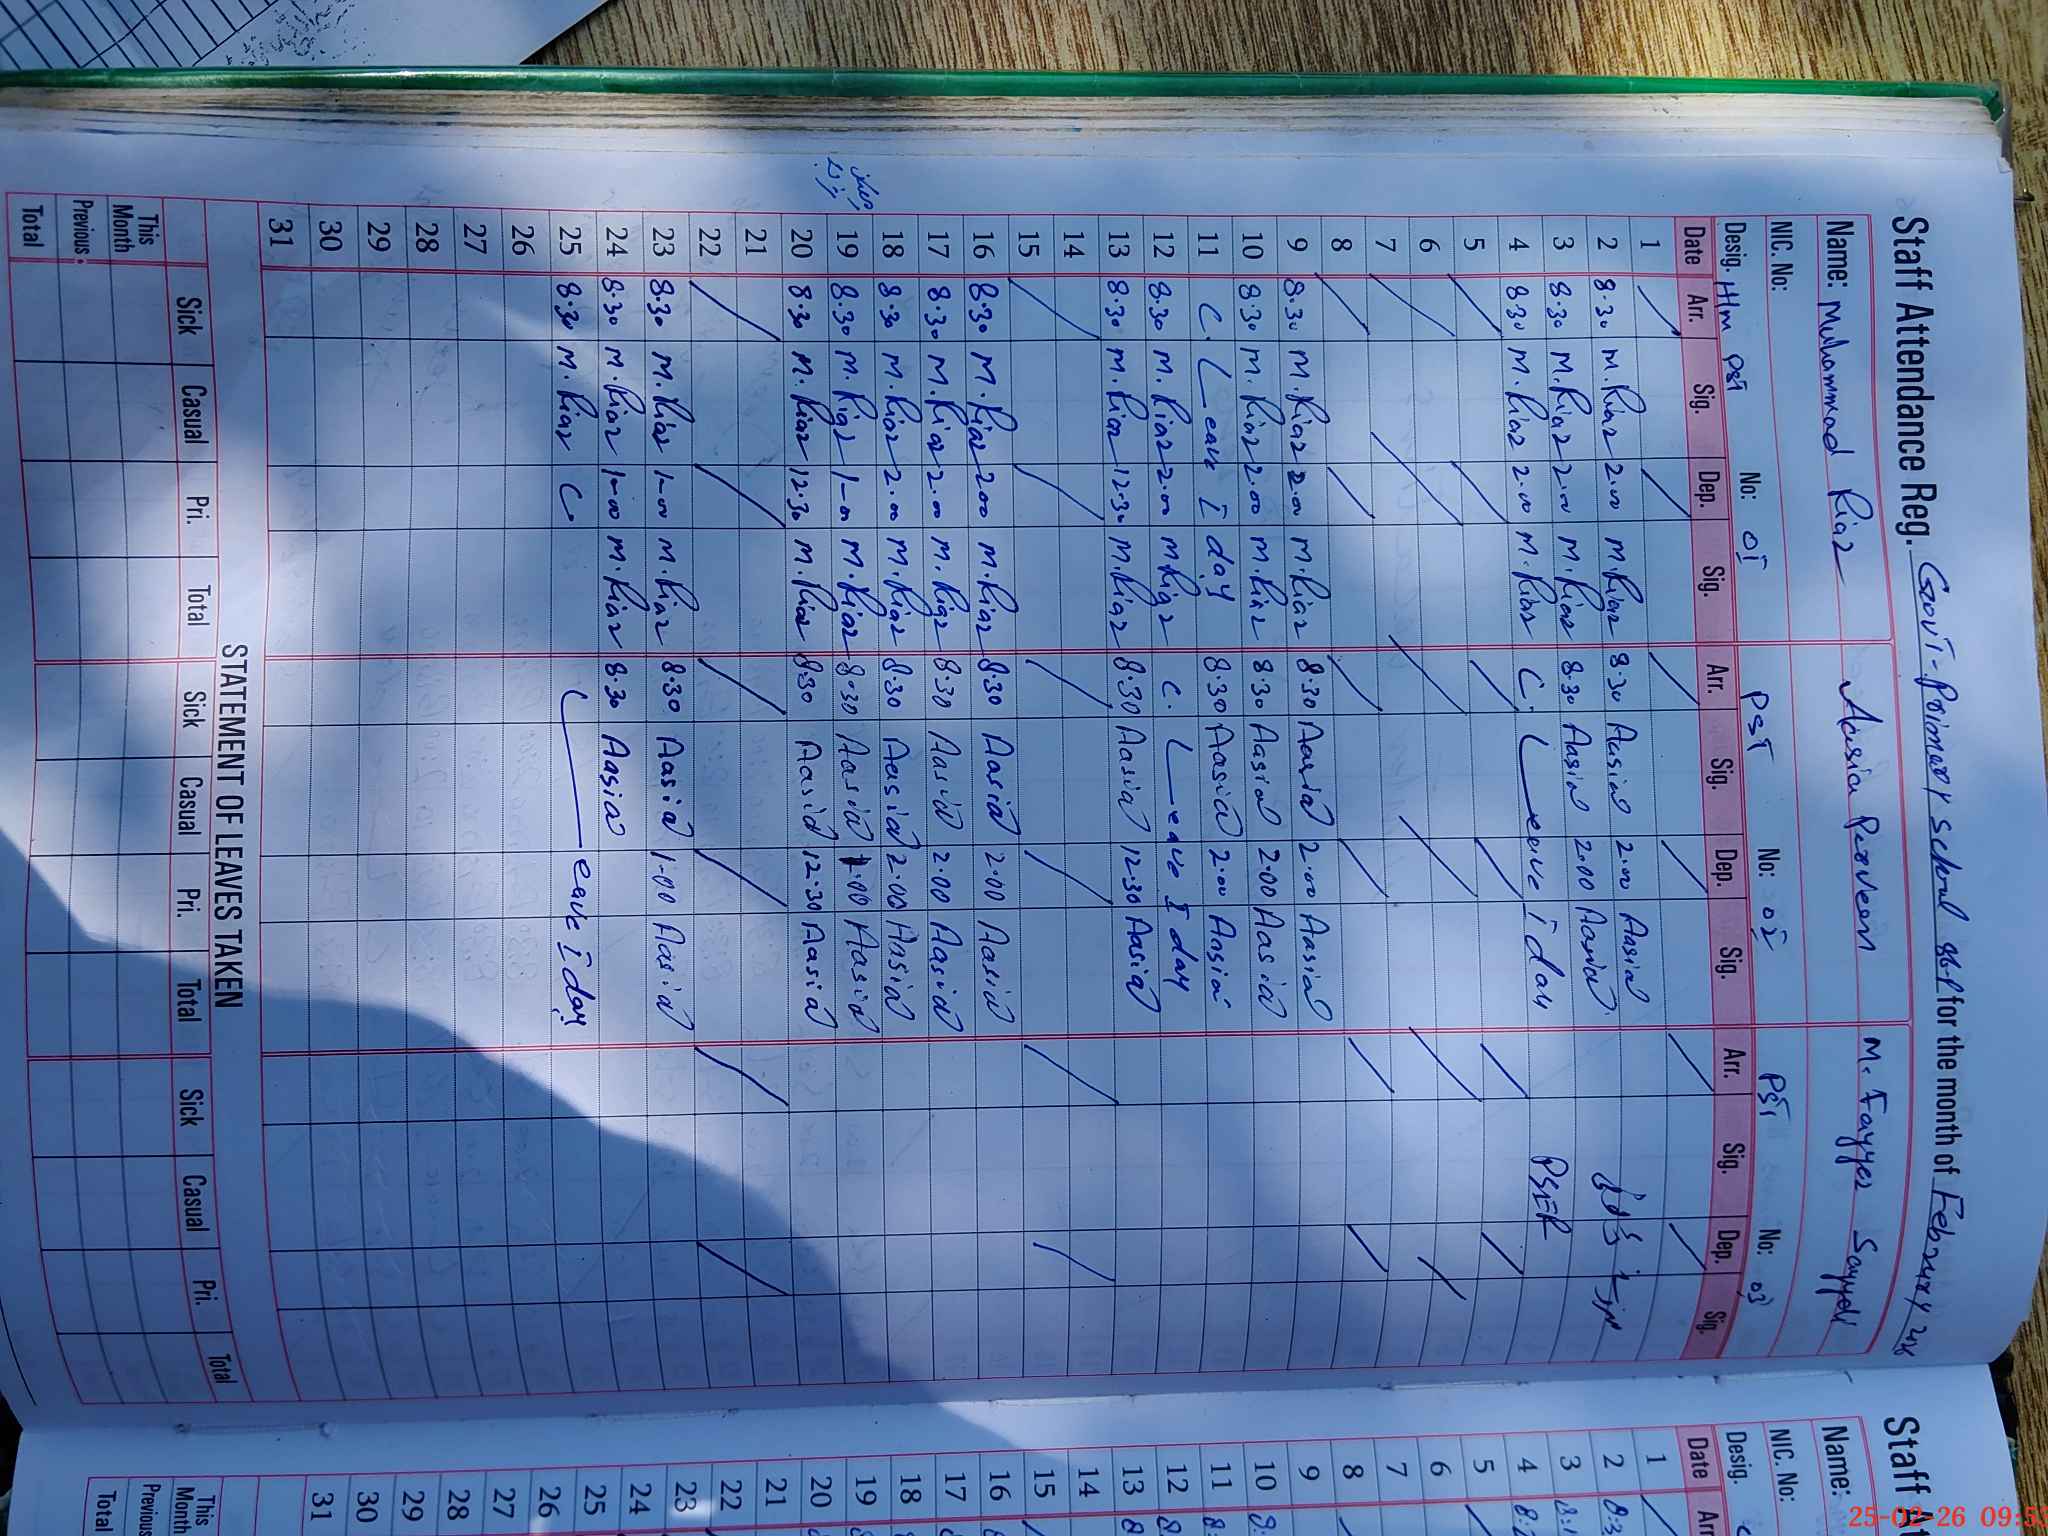 Staff Attendance Reg. Govt. Primary School for the month of February
Name: Muhammad Riaz Aasia Parveen M. Fayyaz Sayyed
NIC. No:
Desig. HM PST No: 01 PST No: 02 PST No: 03
Date Arr. Sig. Dep. Sig. Arr. Sig. Dep. Sig. Arr. Sig. Dep. Sig.
1
2 8.30 M.Riaz 2.00 M.Riaz 8.30 Aasia 2.00 Aasia
3 8.30 M.Riaz 2.00 M.Riaz 8.30 Aasia 2.00 Aasia
4 8.30 M.Riaz 2.00 M.Riaz C. Leave 1 day PSER
5
6
7
8
9 8.30 M.Riaz 2.00 M.Riaz 8.30 Aasia 2.00 Aasia
10 8.30 M.Riaz 2.00 M.Riaz 8.30 Aasia 2.00 Aasia
11 C. Leave 1 day 8.30 Aasia 2.00 Aasia
12 8.30 M.Riaz 2.00 M.Riaz C. Leave 1 day
13 8.30 M.Riaz 12.30 M.Riaz 8.30 Aasia 12.30 Aasia
14
15
16 8.30 M.Riaz 2.00 M.Riaz 8.30 Aasia 2.00 Aasia
17 8.30 M.Riaz 2.00 M.Riaz 8.30 Aasia 2.00 Aasia
18 8.30 M.Riaz 2.00 M.Riaz 8.30 Aasia 2.00 Aasia
19 8.30 M.Riaz 1-00 M.Riaz 8.30 Aasia 1.00 Aasia
20 8.30 M.Riaz 12.30 M.Riaz 8.30 Aasia 12.30 Aasia
21
22
23 8.30 M.Riaz 1-00 M.Riaz 8.30 Aasia 1.00 Aasia
24 8.30 M.Riaz 1-00 M.Riaz 8.30 Aasia
25 8.30 M.Riaz C. Leave 1 day
26
27
28
29
30
31
STATEMENT OF LEAVES TAKEN
Sick Casual Pri. Total Sick Casual Pri. Total Sick Casual Pri. Total
This Month
Previous
Total
Staff
Name:
NIC. No:
Desig.
Date Arr
1
2
3
4
5
6
7
8
9
10
11
12
13
14
15
16
17
18
19
20
21
22
23
24
25
26
27
28
29
30
31
This Month
Previous
Total
25-02-26 09:53